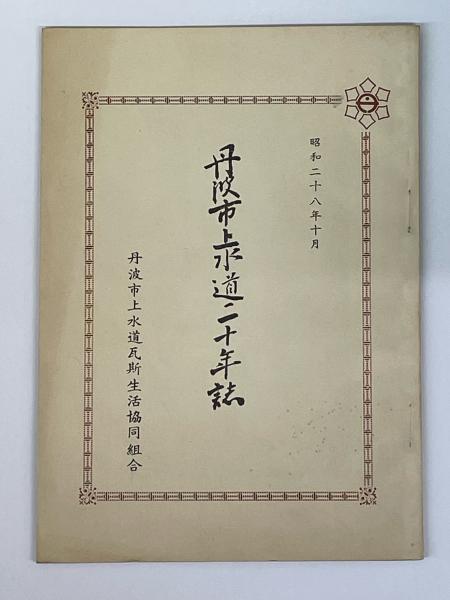 昭和二十八年十月
丹波市上水道二十年誌
丹波市上水道瓦斯生活協同組合